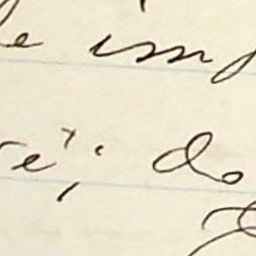 e imp
re"; do